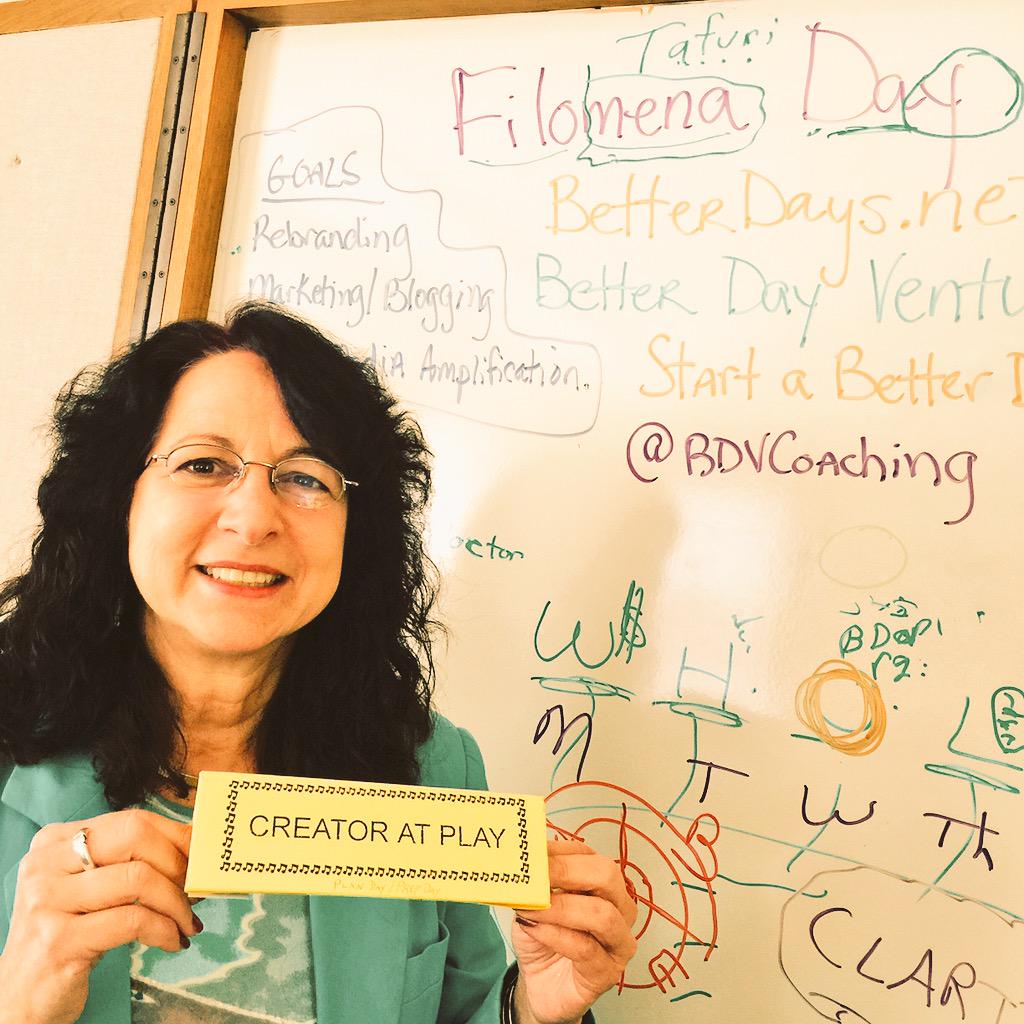 Tafuri
Filomena Day
GOALS
Rebranding
Marketing/Blogging
Amplification.
BetterDays.ne
Better Day Ventu
Start a Better D
@BDVCoaching
octor
W$
H
L
M
T
W
Th
CLAR
CREATOR AT PLAY
PLAN DAY / PREP DAY